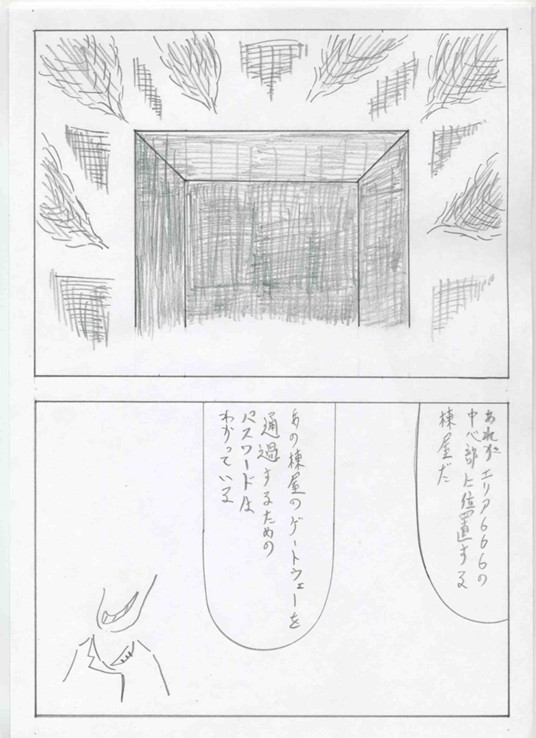 あれがエリア666の
中心部に位置する
棟屋だ
あの棟屋のゲートウェーを
通過するための
パスワードは
わかっている